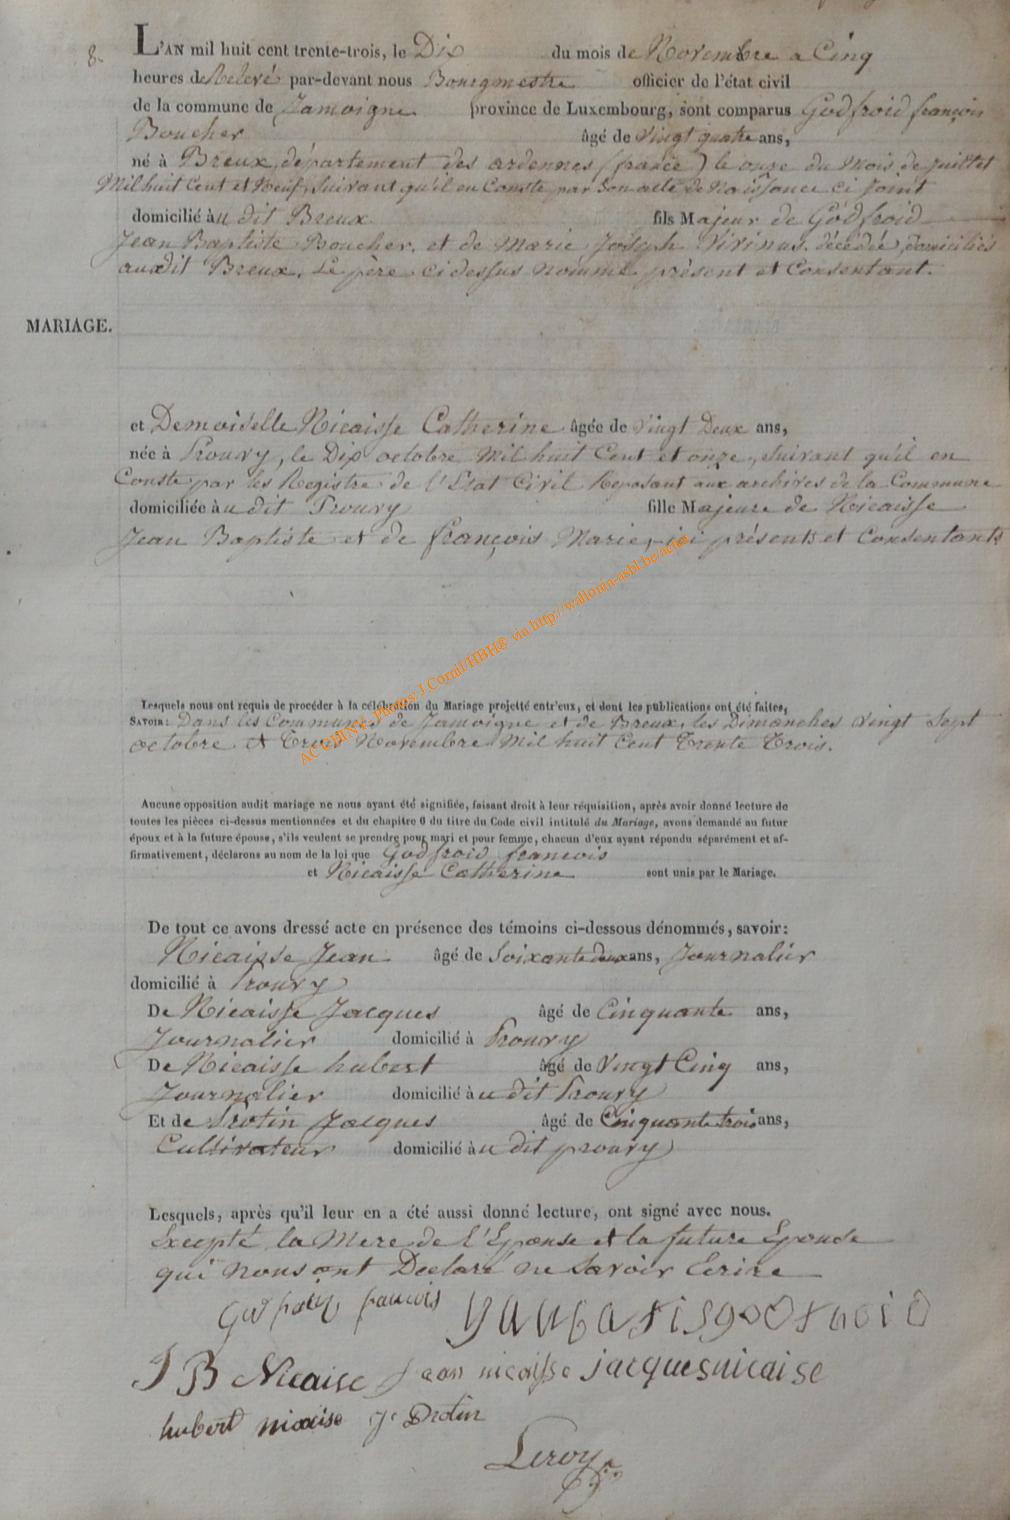 8.
L'AN mil huit cent trente-trois, le Dix du mois de Novembre a Cinq
heures de Relevé par-devant nous Bourgmestre officier de l'état civil
de la commune de Jamoigne province de Luxembourg, sont comparus Godfroid françois
Boucher âgé de vingt quatre ans,
né à Breux, département des ardennes (france) le onze du Mois de Juillet
Mil huit Cent et Neuf, Suivant qu'il en Conste par Son acte de Naissance ci joint
domicilié àu dit Breux fils Majeur de Godfroid
Jean Baptiste Boucher, et de Marie Joseph Vivinus, décédée, domiciliés
audit Breux, Le père ci dessus nommé présent et Consentant.
MARIAGE.
et Demoiselle Nicaisse Catherine âgée de Vingt Deux ans,
née à Prouvy, le Dix octobre Mil huit Cent et onze, Suivant qu'il en
Conste par les Registre de l'Etat Civil Reposant aux archives de la Commune
domiciliée àu dit Prouvy fille Majeure de Nicaisse
Jean Baptiste et de françois Marie, ici présents et Consentants
Lesquels nous ont requis de procéder à la célébration du Mariage projetté entr'eux, et dont les publications ont été faites,
SAVOIR: Dans les Communes de Jamoigne et de Breux, les Dimanches vingt Sept
octobre et trois Novembre Mil huit Cent Trente Trois.
Aucune opposition audit mariage ne nous ayant été signifiée, faisant droit à leur réquisition, après avoir donné lecture de
toutes les pièces ci-dessus mentionnées et du chapitre 6 du titre du Code civil intitulé du Mariage, avons demandé au futur
époux et à la future épouse, s'ils veulent se prendre pour mari et pour femme, chacun d'eux ayant répondu séparément et af-
firmativement, déclarons au nom de la loi que Godfroid francois
et Nicaisse Catherine sont unis par le Mariage.
De tout ce avons dressé acte en présence des témoins ci-dessous dénommés, savoir:
Nicaisse Jean âgé de Soixante deux ans, Journalier
domicilié à Prouvy
De Nicaisse Jacques âgé de Cinquante ans,
Journalier domicilié à Prouvy
De Nicaisse hubert âgé de Vingt Cinq ans,
Journalier domicilié àu dit Prouvy
Et de Protin Jacques âgé de Cinquante trois ans,
Cultivateur domicilié àu dit prouvy
Lesquels, après qu'il leur en a été aussi donné lecture, ont signé avec nous.
Excepté la Mere de l'Epouse et la future Epouse
qui Nous ont Declaré ne Savoir Ecrire
J B Nicaise Jean nicaisse jacques nicaise
hubert nicaise J. Protin
Leroy
ACCHINY. Photos J.Cornil/HBH® via http://wallonia-asbl.be/actes